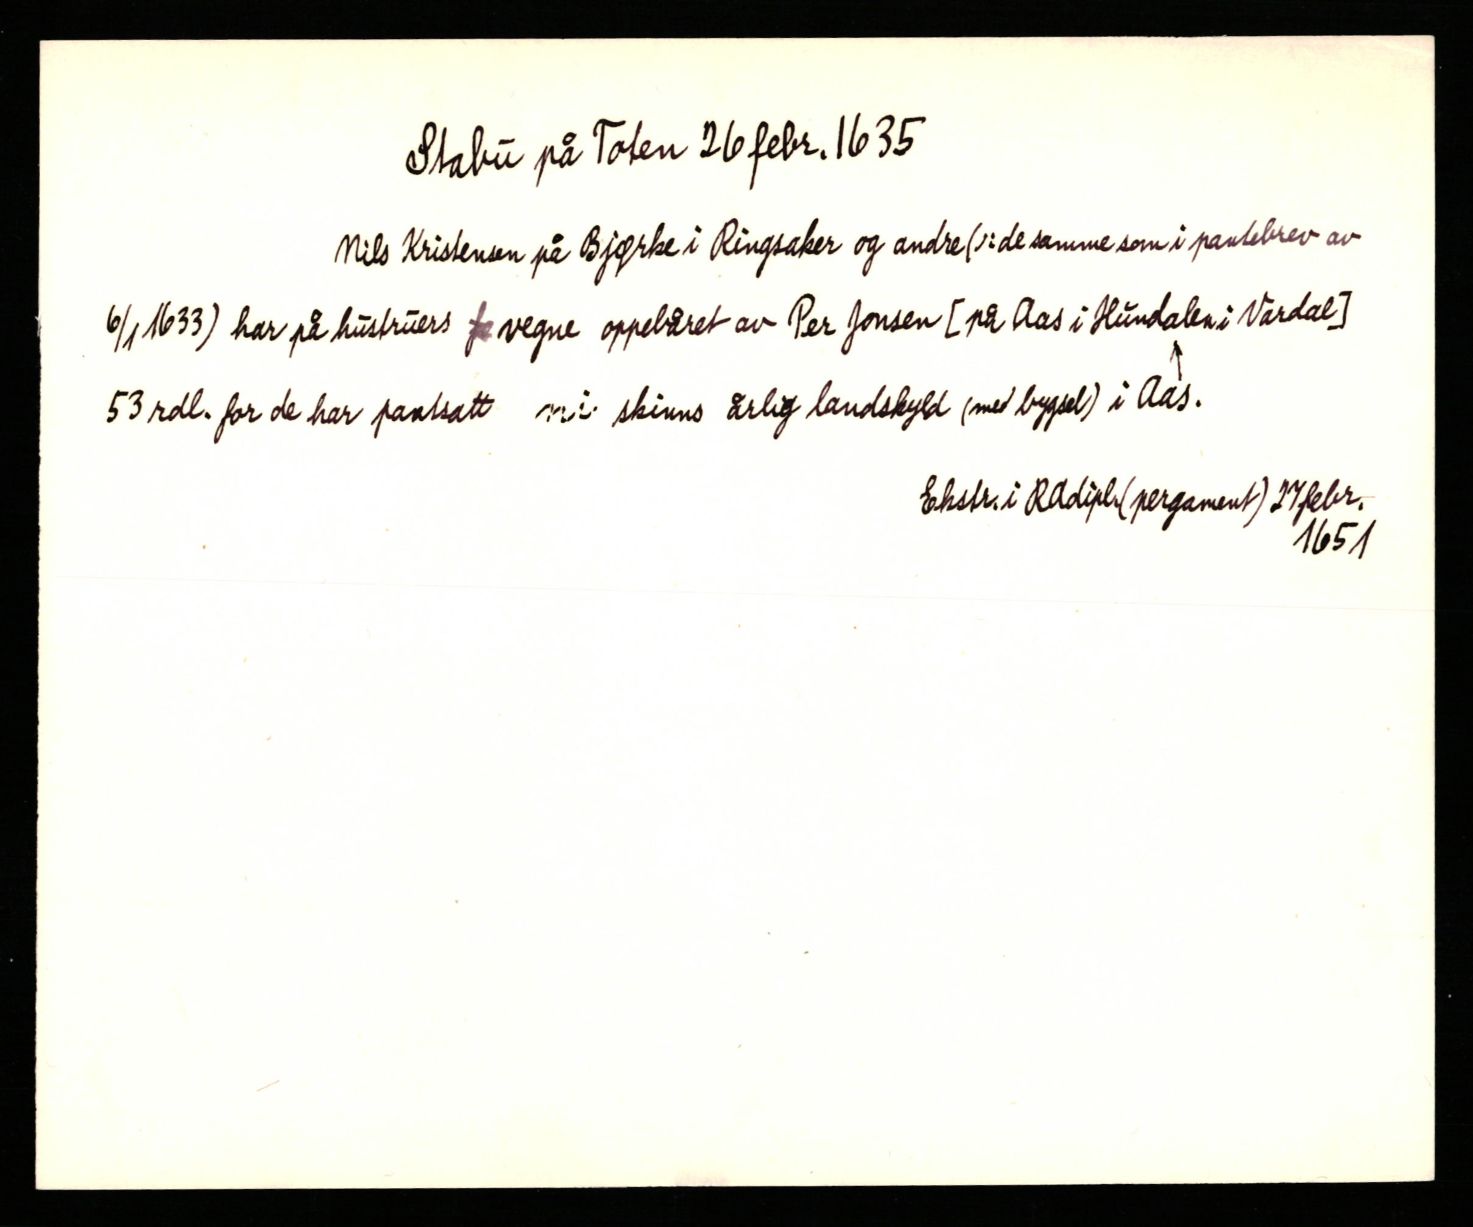 Stabu på Toten 26 febr. 1635
Nils Kristensen på Bjørke i Ringsaker og andre (ɔ: de samme som i pantebrev av
6/1 1633) har på hustruers vegne oppebåret av Per Jonsen [på Aas i Hundalen i Vardal]
53 rdl. for de har pantsatt skinns årlig landskyld (med bygsel) i Aas.
Ekstr. i RAdipl. (pergament) 27 febr.
1651